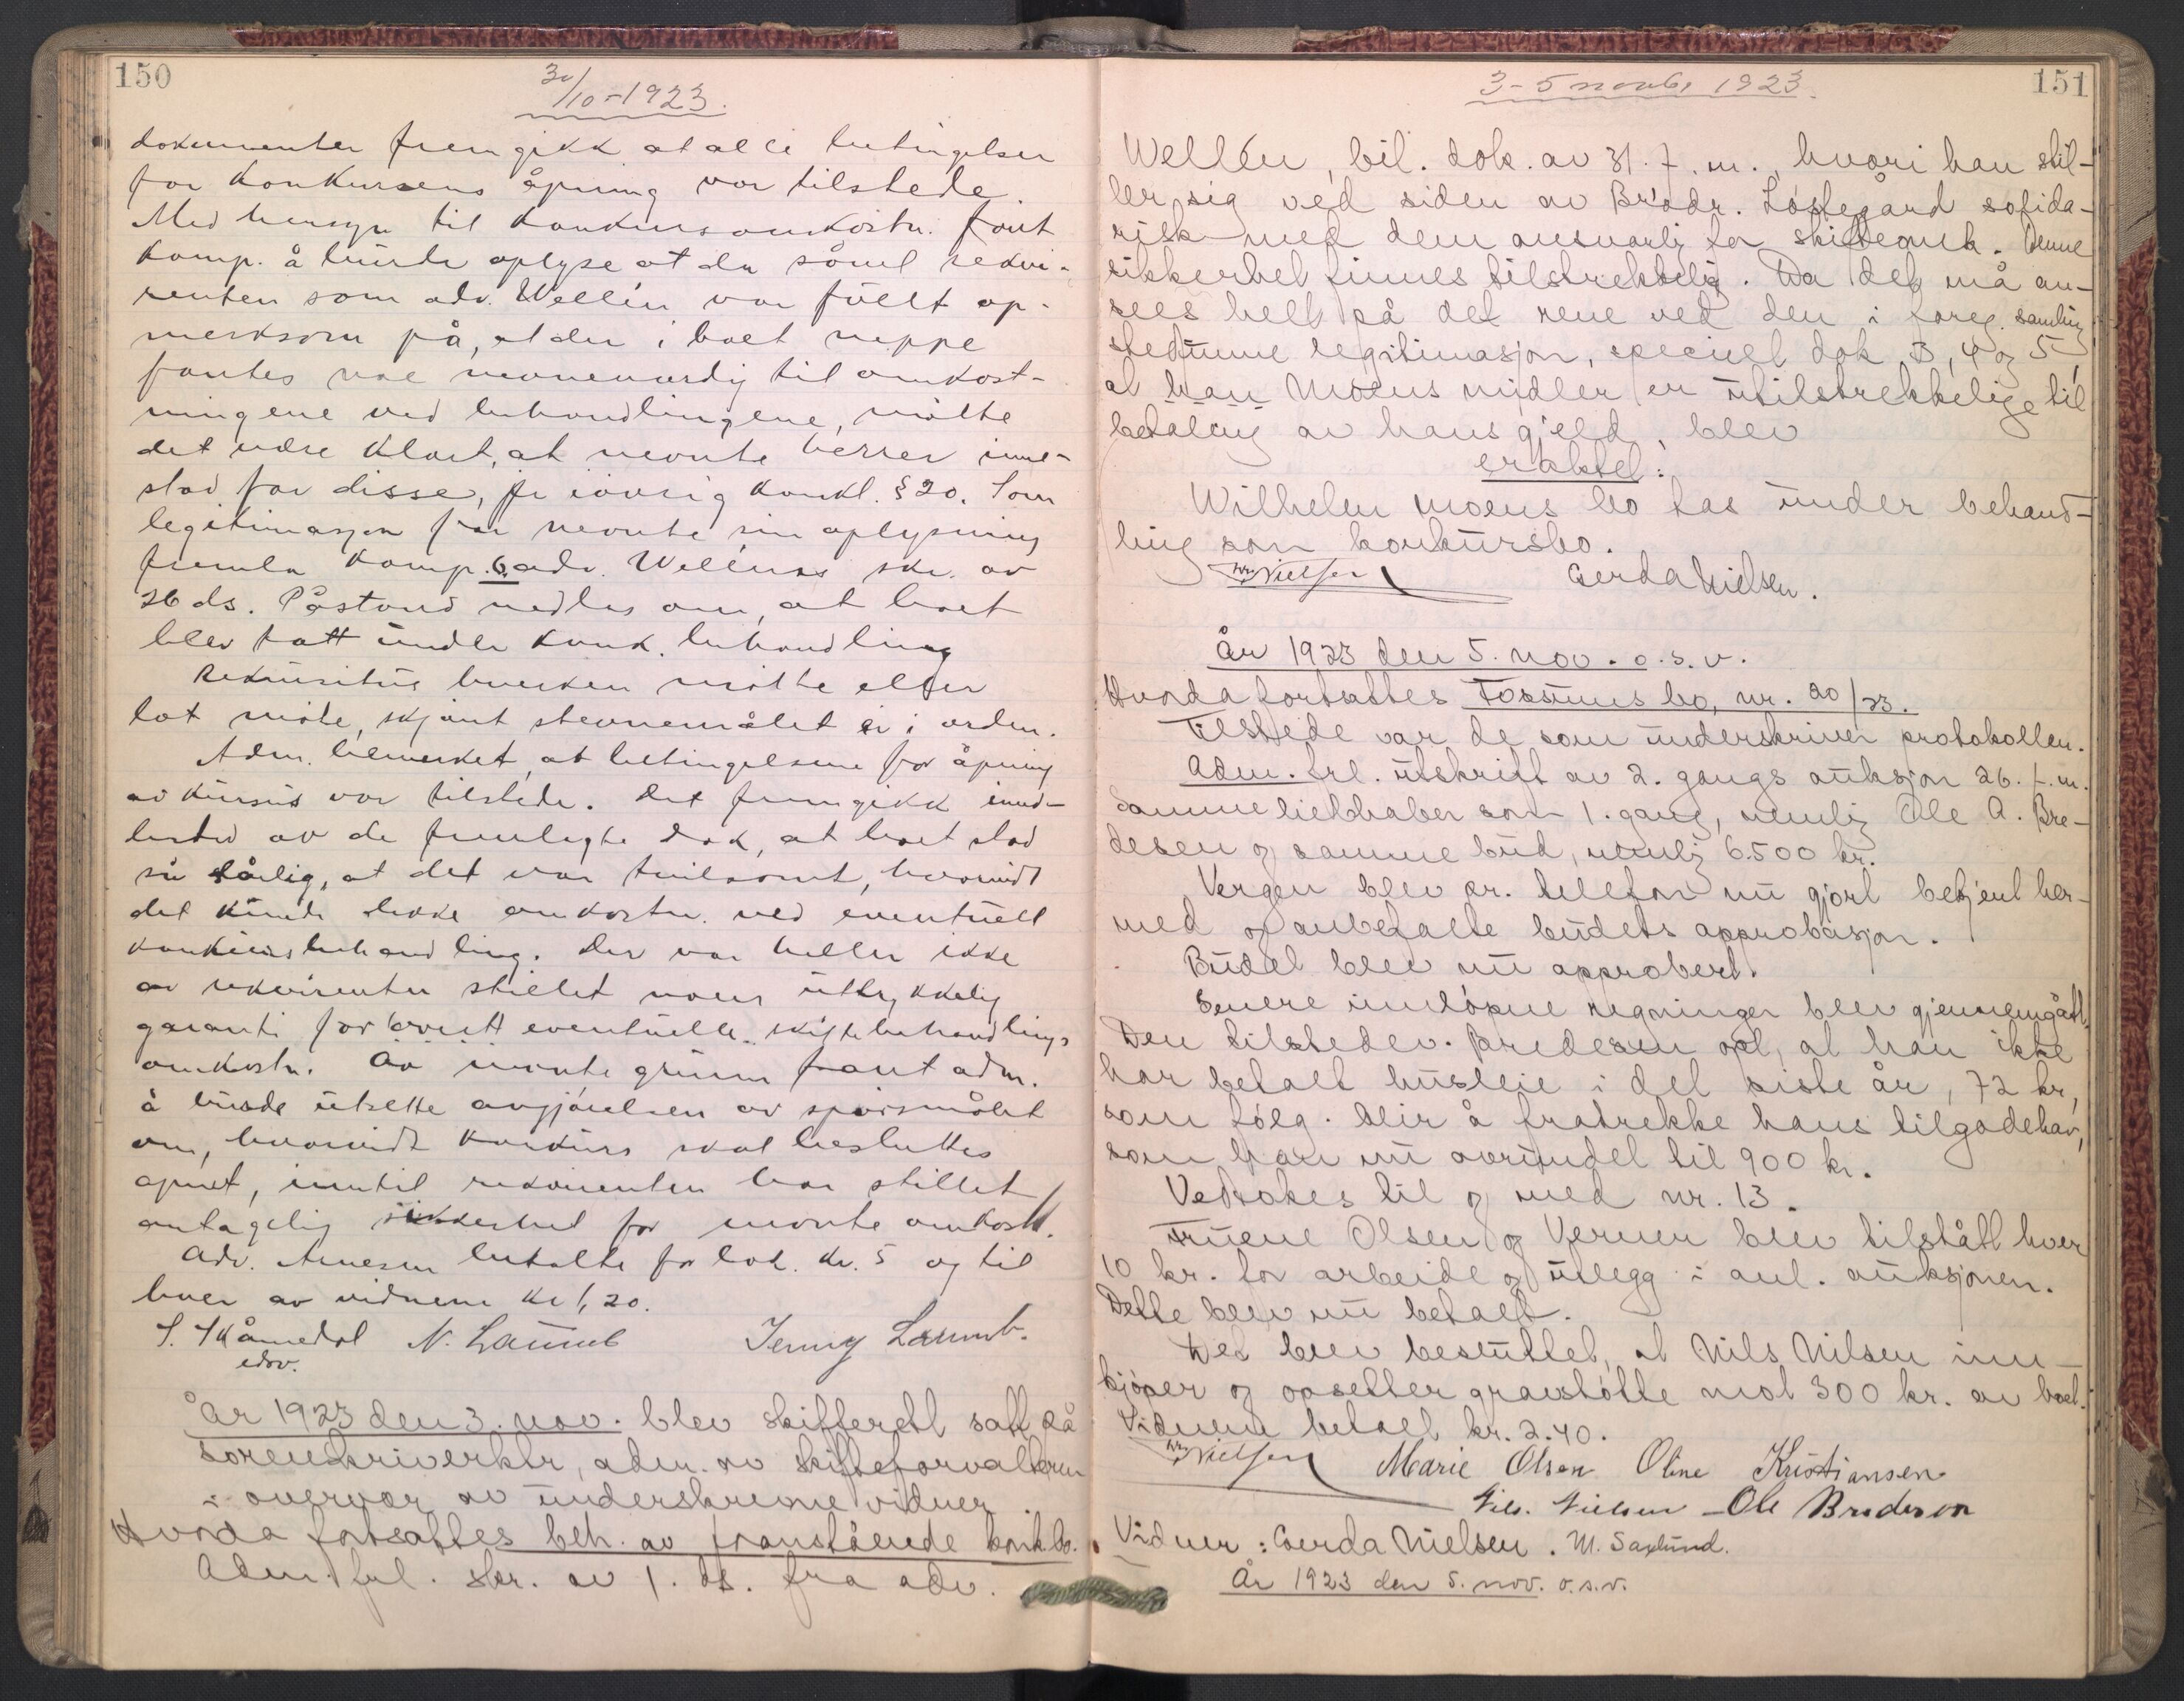 150
30/10-1923.
dokumenter fremgikk at alle betingelser
for konkursens åpning var tilstede.
Med hensyn til konkursomkostn. fant
komp. å burde oplyse at da såvel rekvi-
renten som adv. Wellén var fullt op-
merksom på, at der i boet neppe
fantes noe nevneverdig til omkost-
ningene ved behandlingene, måtte
det være klart, at nevnte herrer inne-
stod for disse, jfr iøvrig konkl. § 20. Som
legitimasjon for nevnte sin oplysning
fremla komp. 6, adv. Welléns skr. av
26 ds. Påstand nedles om, at boet
blev tatt under konk. behandling
Rekvisitus hverken møtte eller
lot møte, skjønt stevnemålet er i orden.
Adm. bemerket, at betingelsene for åpning
av kursus var tilstede. Det fremgikk imid-
lertid av de fremlagte dok, at boet stod
så dårlig, at det var tvilsomt, hvorvidt
det kunde dekke omkostn. ved eventuell
konkursbehandling. Der var heller ikke
av rekvirenten stillet noen uttrykkelig
garanti for eventuelle skiftebehandlings
omkostn. Av nevnte grunn fant adm.
å burde utsette avgjørelsen av spørsmålet
om, hvorvidt konkurs skal besluttes
åpnet, inntil rekvirenten har stillet
antagelig sikkerhet for nevnte omkostn.
Adv. Arnesen betalte for lok. kr. 5 og til
hver av vidnene kr 1,20.
S. Skåmedal N. Laumb Jenny Laumb.
edsv.
År 1923 den 3. nov. blev skifterett satt på
sorenskriverktr, adm. av skifteforvalteren
i overvær av underskrevne vidner
Hvorda fortsattes beh. av franstående konk.bo.
Adm. frl. skr. av 1. ds. fra adv.
3-5 novbr 1923.
151
Wellén, bil. dok. av 31. f. m., hvori han stil-
ler sig ved siden av Brødr. Løstegård solida-
risk med dem ansvarlig for skifteomk. Denne
sikkerhet finnes tilstrekkelig. Da det må an-
sees helt på det rene ved den i foreg. samling
stedfunne legitimasjon, specielt dok 3, 4 og 5,
at han Moens midler er utilstrekkelige til
betaling av hans gjeld, blev
eraktet:
Wilhelm Moens bo tas under behand-
ling som konkursbo.
Wm Nielsen Gerda Nielsen.
År 1923 den 5. nov. o.s.v.
Hvorda fortsattes Fossums bo, nr. 20/23.
Tilstede var de som underskriver protokollen.
Adm. frl. utskrift av 2. gangs auksjon 26. f. m.
Samme liebhaber som 1. gang, nemlig Ole A. Bre-
desen og samme bud, nemlig 6.500 kr.
Vergen blev pr. telefon nu gjort bekjent her-
med og anbefalte budets approbasjon.
Budet blev nu approbert.
Senere innløpne regninger blev gjennemgått.
Den tilstedev. Bredesen opl, at han ikke
har betalt husleie i det siste år, 72 kr,
som følg. blir å fratrekke hans tilgodehav,
som han nu avrundet til 900 kr.
Vedtokes til og med nr. 13.
Fruene Olsen og Verner blev tilstått hver
10 kr. for arbeide og utlegg i anl. auksjonen.
Dette blev nu betalt.
Det blev besluttet, at Nils Nilsen inn-
kjøper og opsetter gravstøtte mot 300 kr. av boet.
Vidnene betalt kr. 2.40.
Wm Nielsen Marie Olsen Oline Kristiansen
Nils. Nielsen - Ole Bredesen
Vidner: Gerda Nielsen. M. Saxlund.
År 1923 den 5. nov. o.s.v.